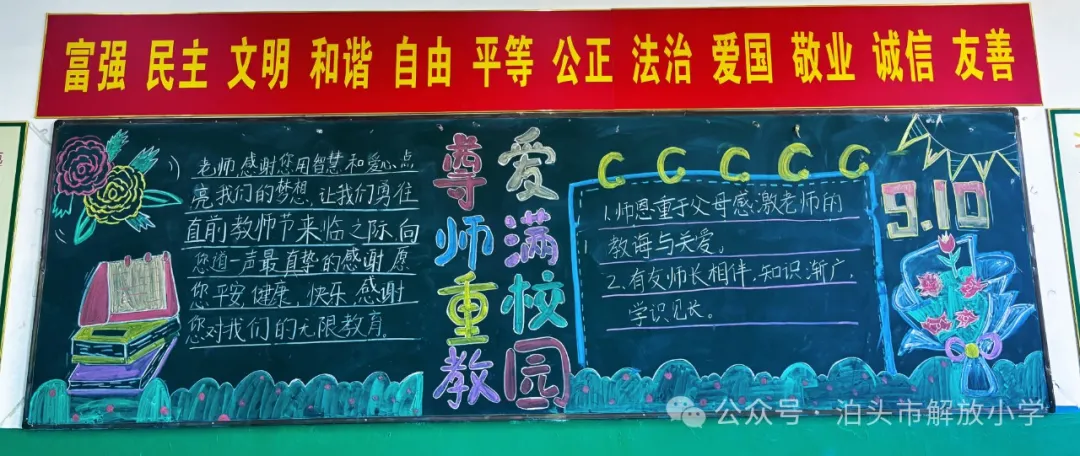 富强 民主 文明 和谐 自由 平等 公正 法治 爱国 敬业 诚信 友善
老师感谢您用智慧和爱心、点
亮我们的梦想,让我们勇往
直前教师节来临之际向
您道一声最真挚的感谢愿
您平安、健康、快乐、感谢
您对我们的无限教育。
尊师重教
爱满校园
1.师恩重于父母感激老师的
教诲与关爱。
2.有友师长相伴,知识渐广,
学识见长。
9.10
公众号·泊头市解放小学